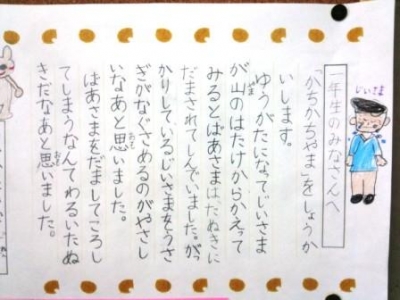 じいさま
一年生のみなさんへ
「かちかちやま」をしょうか
いします。
ゆうがたになってじいさま
が山のはたけからかえって
みるとばあさまはたぬきに
だまされてしんでいました。がっ
かりしているじいさまをうさ
ぎがなぐさめるのがやさし
いなあと思いました。
ばあさまをだましてころし
てしまうなんてわるいたぬ
きだなあと思いました。